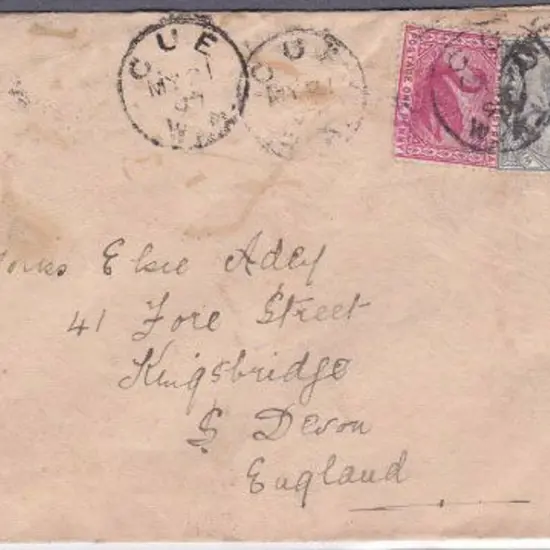 CUE
MY 21
97
W.A.
POSTAGE ONE PENNY
Elsie Adey
41 Fore Street
Kingsbridge
S Devon
England